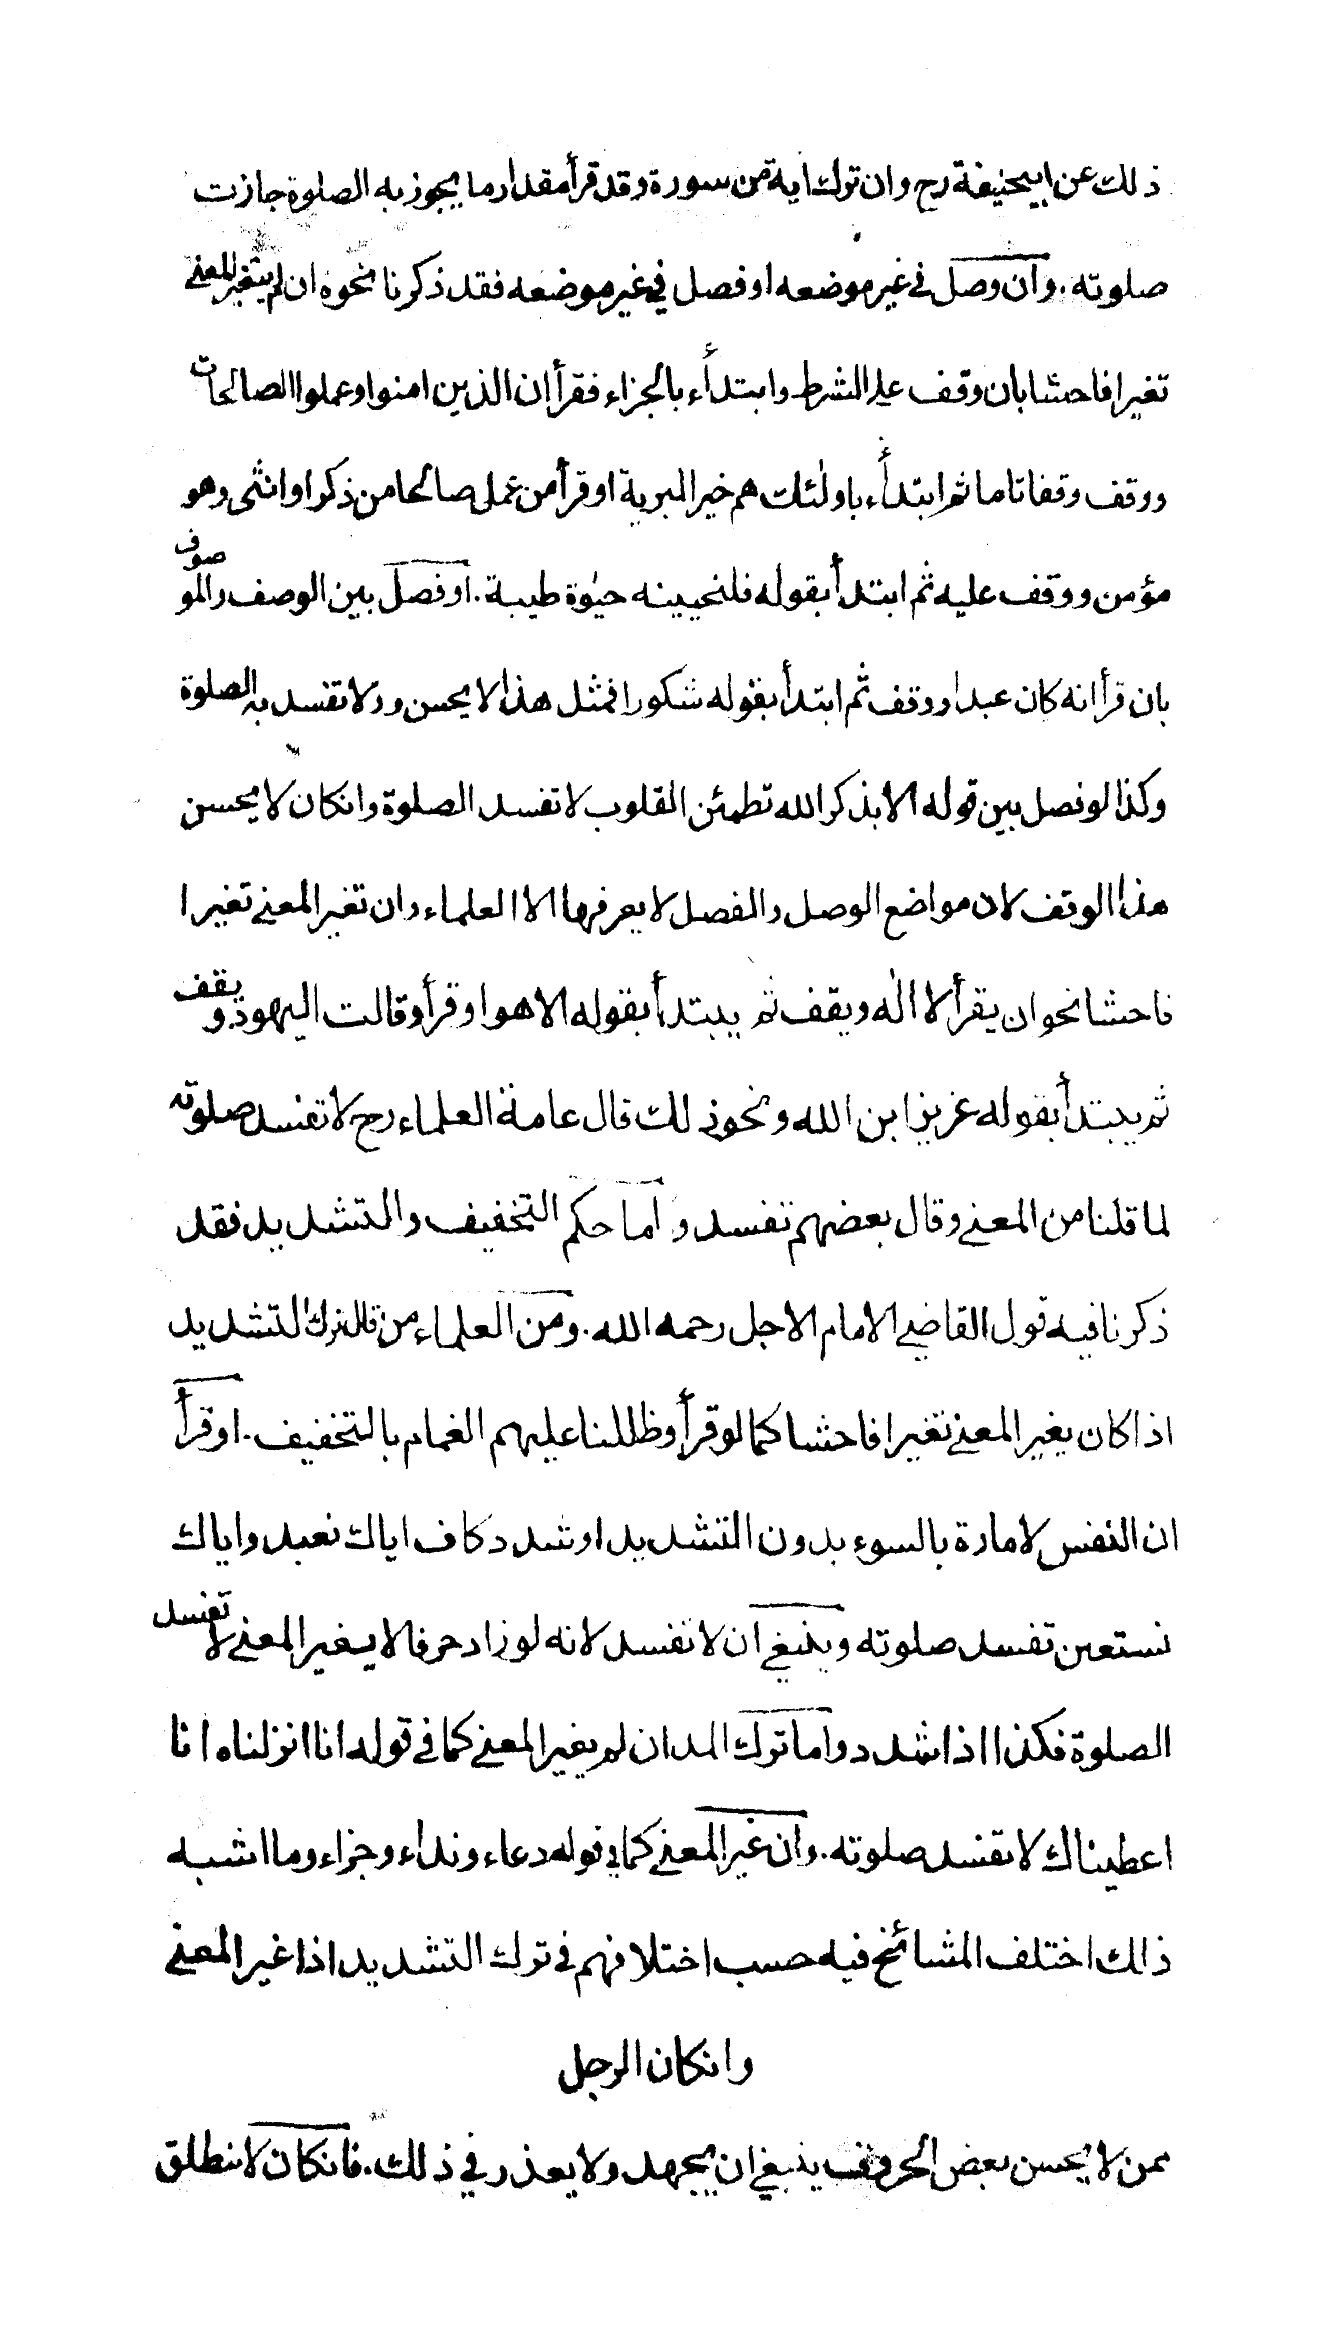 ذلك عن ابيحنيفة رح وان ترك اية من سورة وقد قرأ مقدار ما يجوز به الصلوة جازت
صلوته . وان وصل في غير موضعه او فصل في غير موضعه فقد ذكرنا نحوه ان لم يتغير المعنى
تغيرا فاحشا بان وقف على الشرط وابتدأء بالجزاء فقرأ ان الذين امنوا وعملوا الصالحات
ووقف وقفا تاما ثم ابتدأء باولٰئك هم خير البرية او قرأ من عمل صالحا من ذكر او انثى وهو
مؤمن ووقف عليه ثم ابتدأ بقوله فلنحيينه حيٰوة طيبة . او فصل بين الوصف والموصوف
بان قرأ انه كان عبدا ووقف ثم ابتدأ بقوله شكورا فمثل هذا لا يحسن ولا تفسد به الصلوة
وكذا لو فصل بين قوله الا بذكر الله تطمئن القلوب لا تفسد الصلوة وانكان لا يحسن
هذا الوقف لان مواضع الوصل والفصل لا يعرفها الا العلماء وان تغير المعنى تغيرا
فاحشا نحو ان يقرأ لا الٰه ويقف ثم يبتدأ بقوله الا هو او قرأ وقالت اليهود ويقف
ثم يبتدأ بقوله عزيز ابن الله ونحو ذلك قال عامة العلماء رح لا تفسد صلوته
لما قلنا من المعنى وقال بعضهم تفسد واما حكم التخفيف والتشديد فقد
ذكرنا فيه قول القاضي الامام الاجل رحمه الله . ومن العلماء من قال ترك التشديد
اذا كان يغير المعنى تغيرا فاحشا كما لو قرأ وظللنا عليهم الغمام بالتخفيف . او قرأ
ان النفس لامارة بالسوء بدون التشديد او شدد كاف اياك نعبد واياك
نستعين تفسد صلوته وينبغي ان لا تفسد لانه لو زاد حرفا لا يغير المعنى لا تفسد
الصلوة فكذا اذا شدد واما ترك المد ان لم يغير المعنى كما في قوله انا انزلناه انا
اعطيناك لا تفسد صلوته . وان غير المعنى كما في قوله دعاء ونداء وجزاء وما اشبه
ذالك اختلف المشائخ فيه حسب اختلافهم في ترك التشديد اذا غير المعنى
وانكان الرجل
ممن لا يحسن بعض الحروف ينبغي ان يجهد ولا يعذر في ذلك . فانكان لا ينطلق